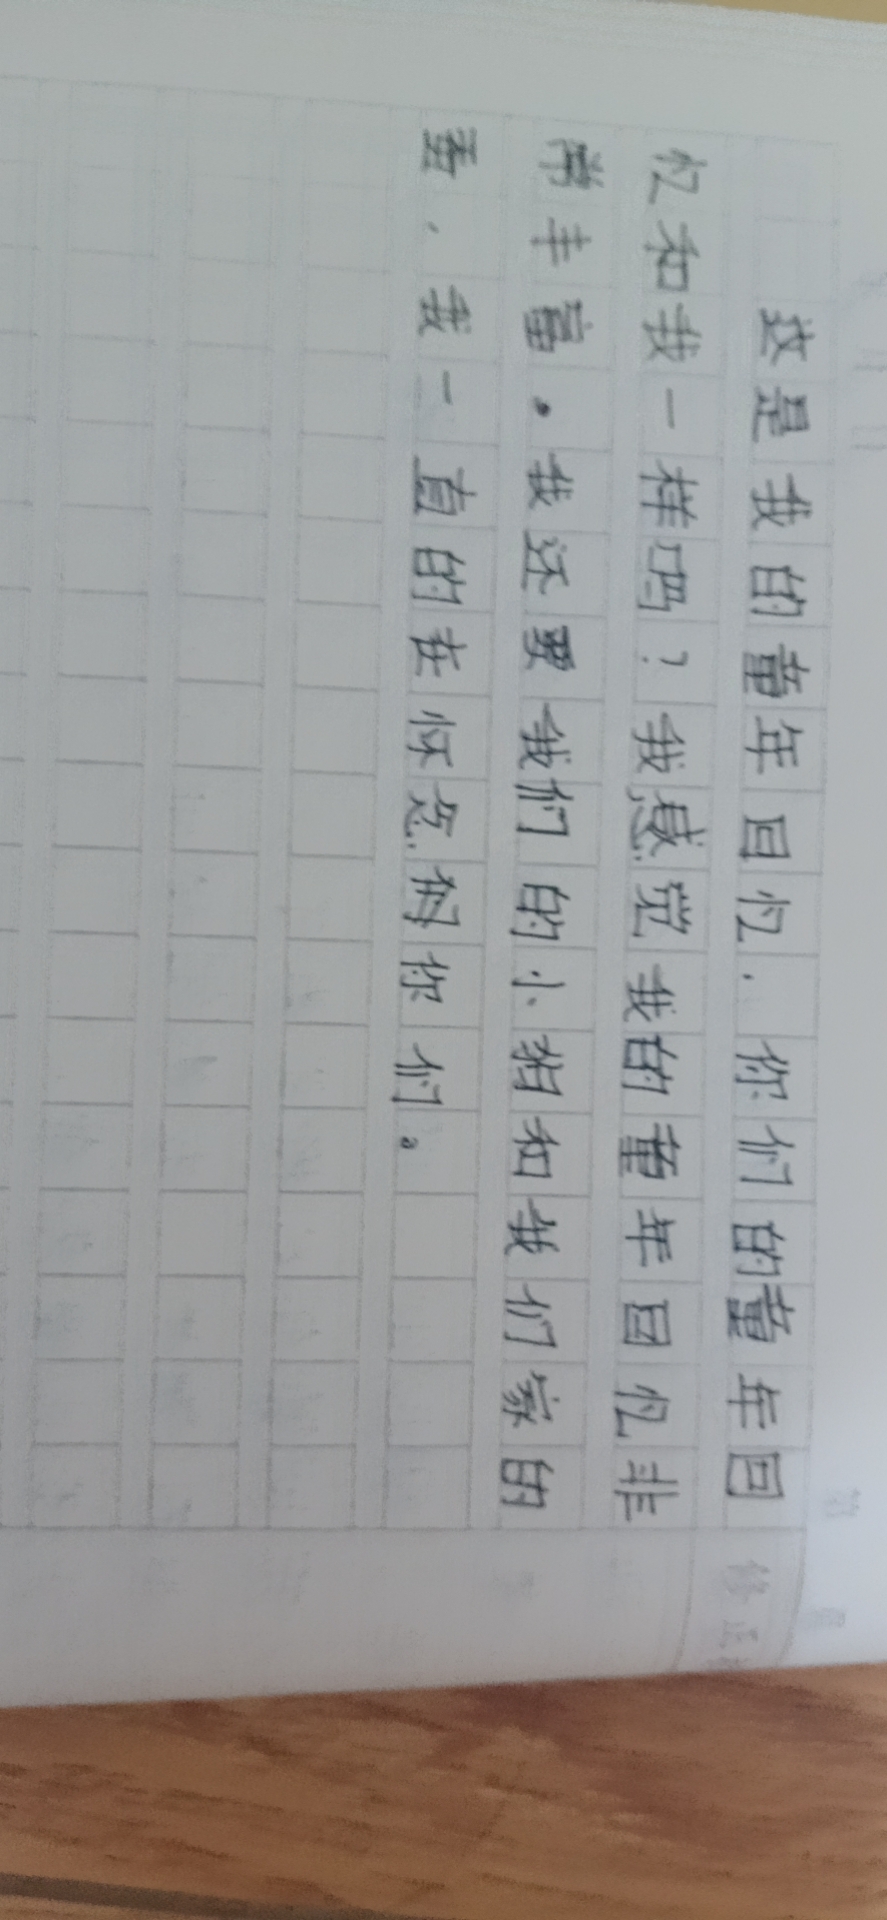 这是我的童年回忆.你们的童年回
忆和我一样吗?我感觉我的童年回忆非
常丰富.我还要我们的小狗和我们家的
、我一直的在怀念你们。
修正